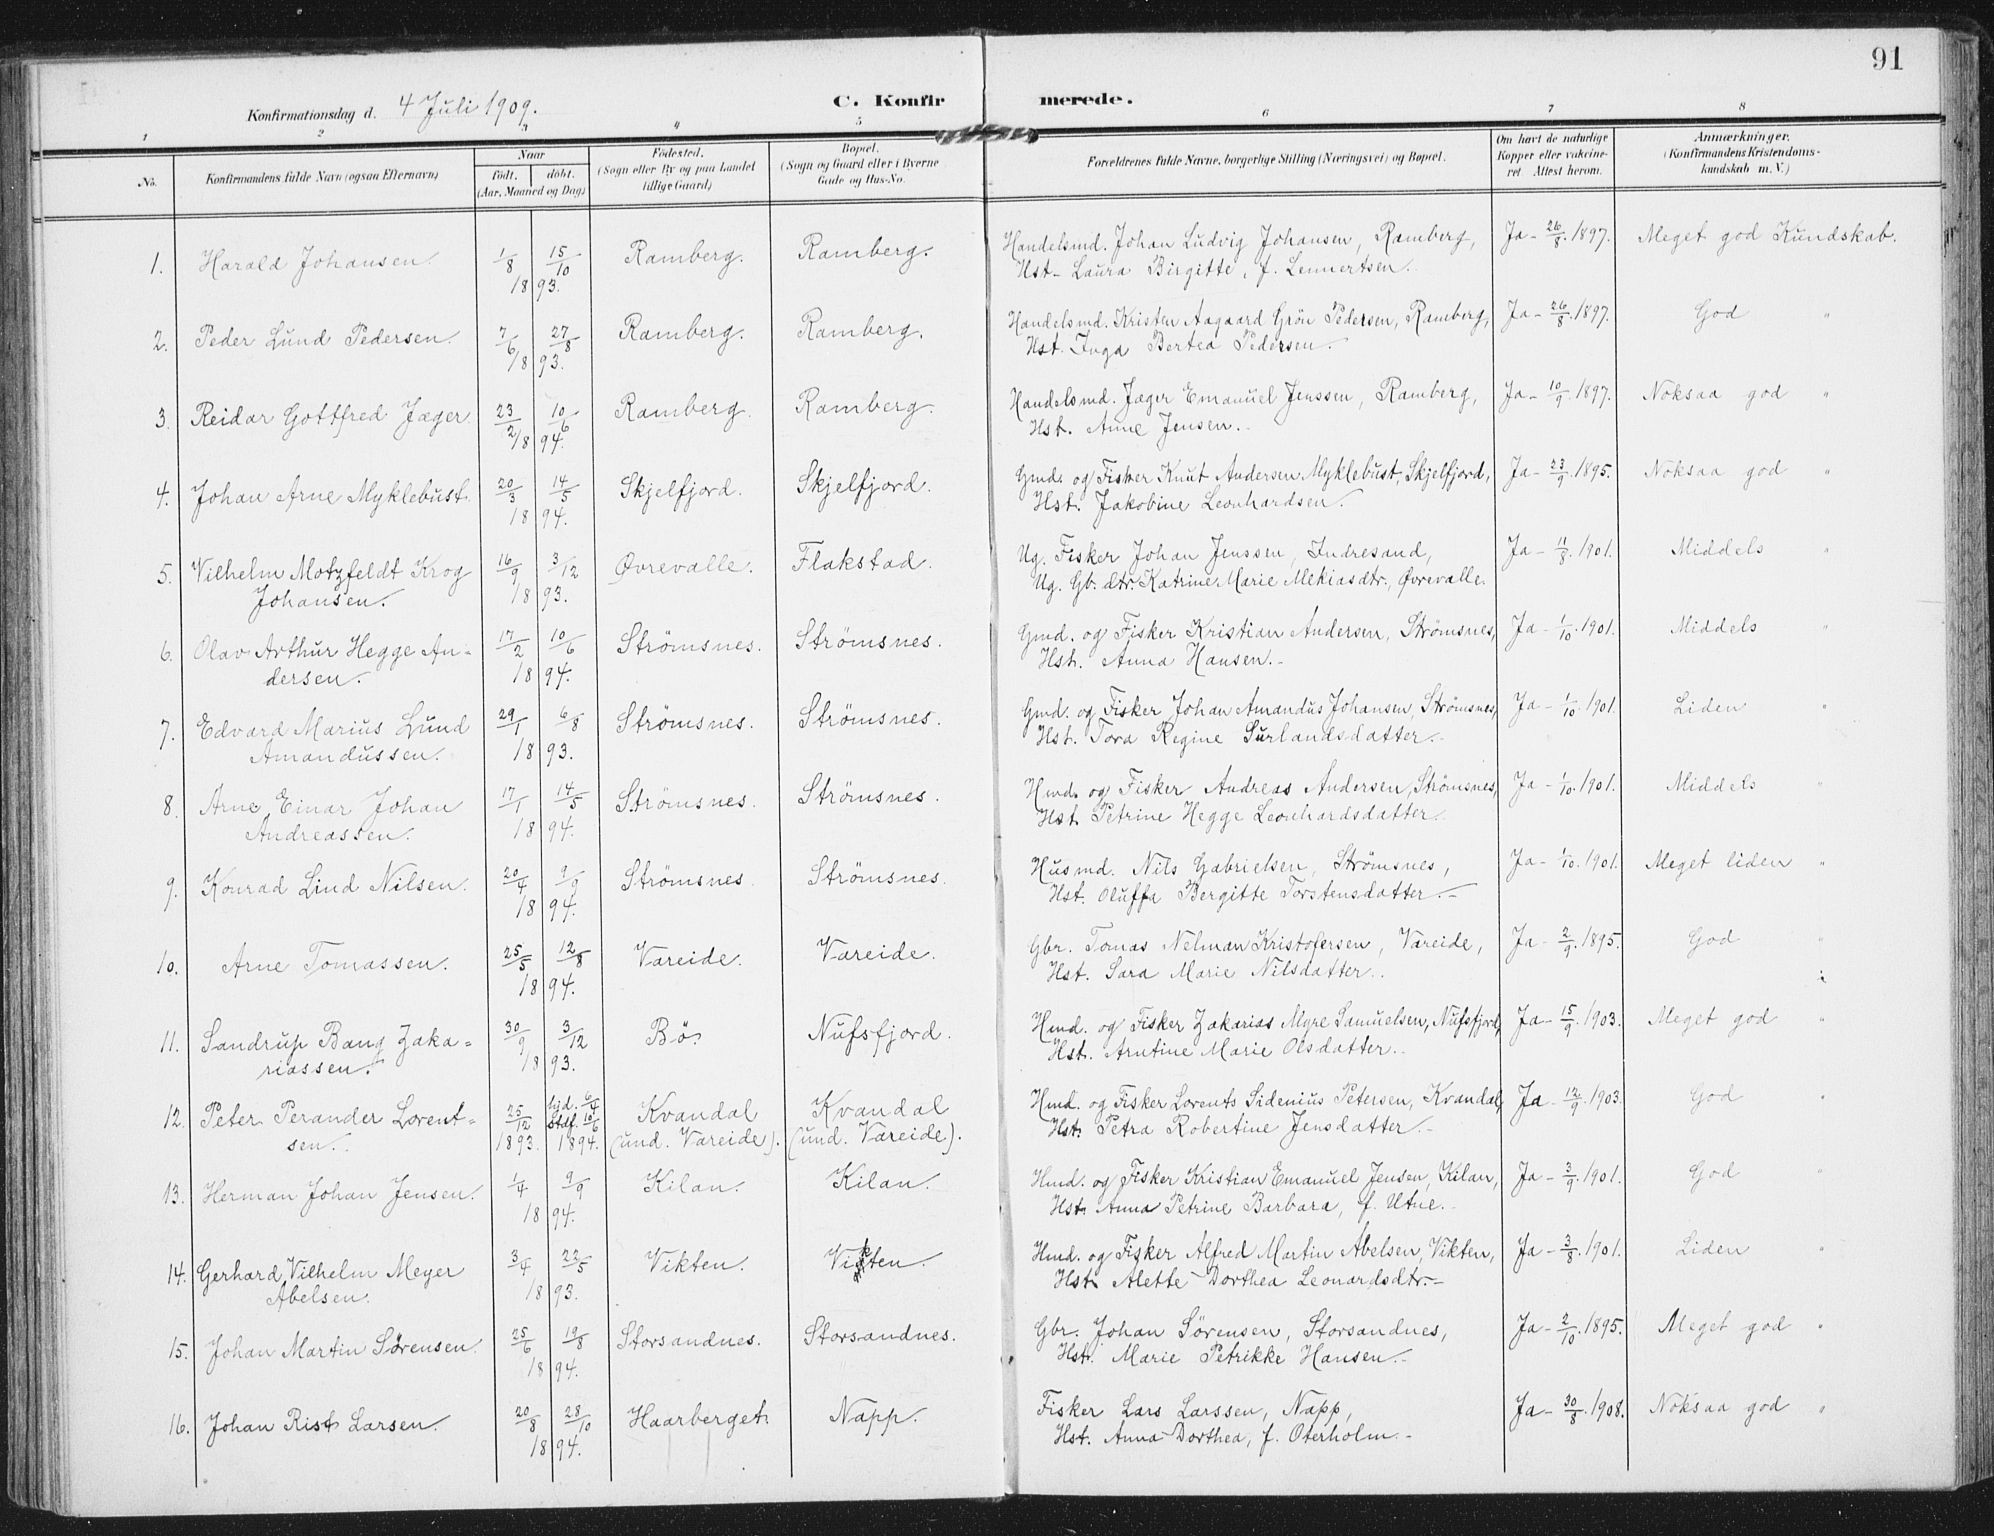 91
Konfirmationsdag d. 4 Juli 1909.
C. Konfirmerede.
1 2 3 4 5 6 7 8
No. Konfirmandens fulde Navn (ogsaa Efternavn) Naar født. døbt. (Aar, Maaned og Dag) Fødested. (Sogn eller By og paa Landet tillige Gaard) Bopæl. (Sogn og Gaard eller i Byerne Gade og Hus-No. Forældrenes fulde Navne, borgerlige Stilling (Næringsvei) og Bopæl. Om havt de naturlige Kopper eller vakcineret. Attest herom. Anmærkninger. (Konfirmandens Kristendomskundskab m. V.)
1. Harald Johansen. 1/8 15/10 1893. Ramberg. Ramberg. Handelsmd. Johan Ludvig Johansen, Ramberg, Ja - 26/8. 1897. Meget god Kundskab.
Hst. Laura Birgitte, f. Lennertsen.
2. Peder Lund Pedersen. 7/6 27/8 1893. Ramberg. Ramberg. Handelsmd. Kristen Aagaard Grön Pedersen, Ramberg, Ja - 26/8. 1897. God "
Hst. Inga Bertea Pedersen.
3. Reidar Gottfred Jæger 23/2 10/6 1894. Ramberg. Ramberg. Handelsmd. Jæger Emanuel Jenssen, Ramberg, Ja - 10/9. 1897. Noksaa god "
Hst. Anne Jensen.
4. Johan Arne Myklebust 20/3 14/5 1894. Skjelfjord. Skjelfjord. Gmd. og Fisker Knut Andersen Myklebust, Skjelfjord, Ja - 23/9. 1895. Noksaa god "
Hst. Jakobine Leonhardsen.
5. Vilhelm Motzfeldt Krog 16/9 3/12 1893. Øvrevalle. Flakstad. Ug. Fisker Johan Jenssen, Indresand, Ja - 11/8. 1901. Middels "
Johansen. Ug. Gb. dtr. Katrine Marie Mekiasdtr., Øvrevalle.
6. Olav Arthur Hegge An- 17/2 10/6 1894. Strömsnes. Strömsnes. Gmd. og Fisker Kristian Andersen, Strömsnes, Ja - 1/10. 1901. Middels "
dersen. Hst. Anna Hansen.
7. Edvard Marius Lund 29/1 6/8 1893. Strömsnes. Strömsnes. Gmd. og Fisker Johan Amandus Johansen, Strömsnes, Ja - 1/10. 1901. Liden "
Amandussen. Hst. Tora Regine Surlandsdatter.
8. Arne Einar Johan 17/1 14/5 1894. Strömsnes. Strömsnes. Hmd. og Fisker Andreas Andersen, Strömsnes, Ja - 1/10. 1901. Middels "
Andreassen. Hst. Petrine Hegge Leonhardsdatter.
9. Konrad Lind Nilsen. 20/4 9/9 1894. Strömsnes. Strömsnes. Husmd. Nils Gabrielsen, Strömsnes, Ja - 1/10. 1901. Meget liden "
Hst. Oluffa Bergitte Torstensdatter.
10. Arne Tomassen. 25/5 12/8 1894. Vareide. Vareide. Gbr. Tomas Nelman Kristofersen, Vareide, Ja - 2/9. 1895. God "
Hst. Sara Marie Nilsdatter.
11. Sandrup Bang Zaka- 30/9 3/12 1893. Bö. Nufsfjord. Hmd. og Fisker Zakarias Myre Samuelsen, Nufsfjord, Ja - 15/9. 1903. Meget god "
riassen. Hst. Arntine Marie Olsdatter.
12. Peter Perander Lorent- 25/12 1893. hjd. 6/4 Stdf. 10/6 1894. Kvandal (und. Vareide). Kvandal (und. Vareide). Hmd. og Fisker Lorents Sidenius Petersen, Kvandal, Ja - 12/9. 1903. God "
sen. Hst. Petra Robertine Jensdatter.
13. Herman Johan Jensen. 1/4 9/9 1894. Kilan. Kilan. Hmd. og Fisker Kristian Emanuel Jensen, Kilan, Ja - 3/9. 1901. God "
Hst. Anna Petrine Barbara, f. Utne.
14. Gerhard Vilhelm Meyer 3/4 22/5 1893. Vikten. Vikten. Hmd. og Fisker Alfred Martin Abelsen, Vikten, Ja - 3/8. 1901. Liden "
Abelsen. Hst. Alette Dorthea Leonardsdtr.
15. Johan Martin Sørensen. 25/6 19/8 1894. Storsandnes. Storsandnes. Gbr. Johan Sörensen, Storsandnes, Ja - 2/10. 1895. Meget god "
Hst. Marie Petrikke Hansen.
16. Johan Rist Larsen. 20/8 28/10 1894. Haarberget. Napp. Fisker Lars Larssen, Napp, Ja - 30/8. 1908. Noksaa god "
Hst. Anna Dorthea, f. Oterholm.